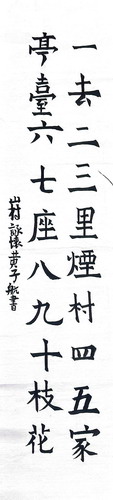 一去二三里煙村四五家
亭臺六七座八九十枝花
山村詠懷黃子航書